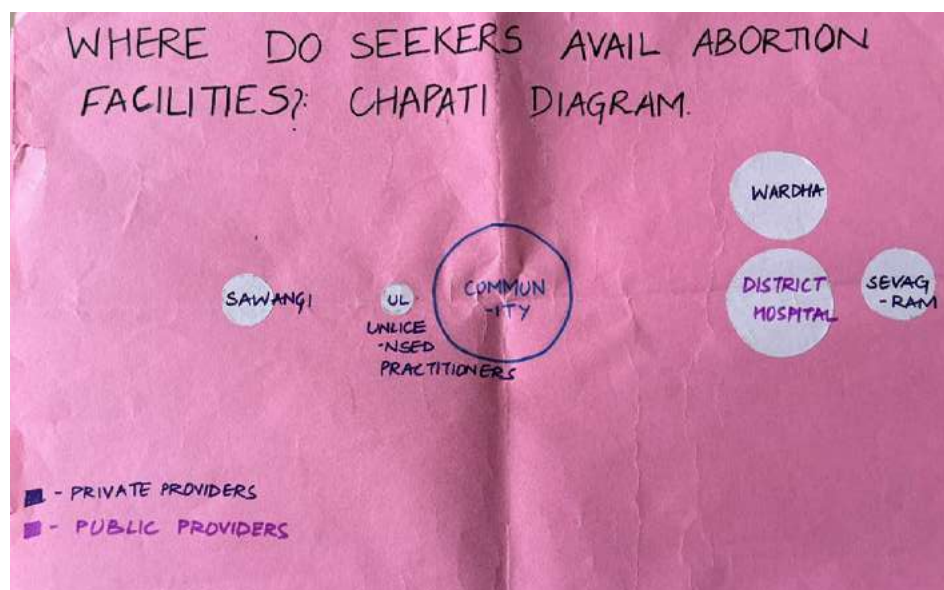 WHERE DO SEEKERS AVAIL ABORTION
FACILITIES?: CHAPATI DIAGRAM.
WARDHA
SAWANGI
UL
UNLICE
-NSED
PRACTITIONERS
COMMUN
-ITY
DISTRICT
HOSPITAL
SEVAG
-RAM
- PRIVATE PROVIDERS
- PUBLIC PROVIDERS